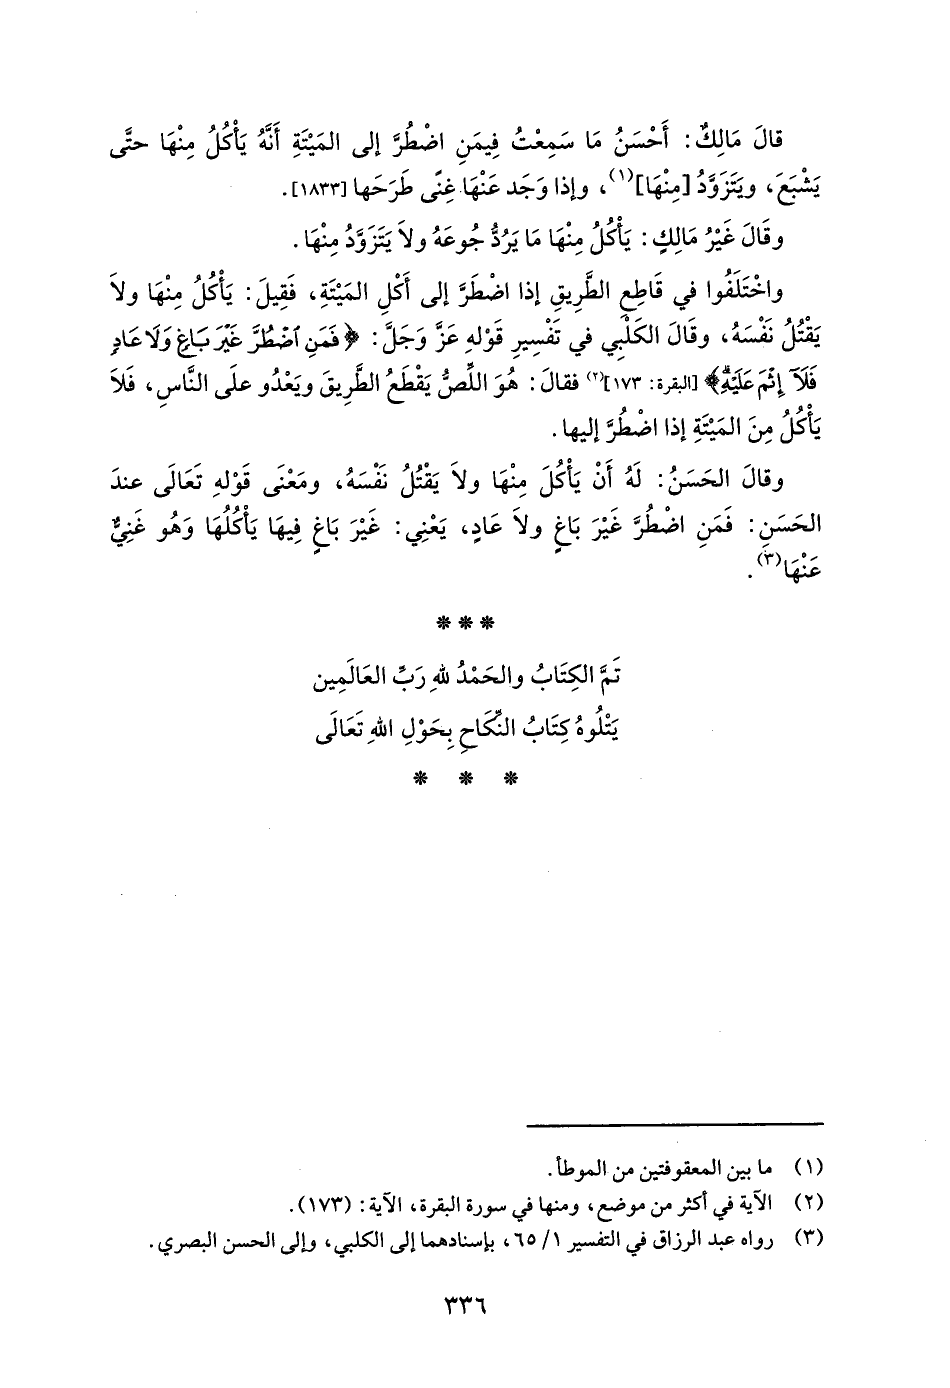 قالَ مَالِكٌ: أَحْسَنُ مَا سَمِعْتُ فِيمَنِ اضْطُرَّ إلى المَيْتَةِ أَنَّهُ يَأْكُلُ مِنْهَا حتَّى
يَشْبَعَ، ويَتَزَوَّدُ [مِنْهَا](١)، وإذا وَجَد عَنْهَا غِنًى طَرَحَها [١٨٣٣].
وقَالَ غَيْرُ مَالِكٍ: يَأْكُلُ مِنْهَا مَا يَرُدُّ جُوعَهُ ولاَ يَتَزَوَّدُ مِنْهَا.
واخْتَلَفُوا في قَاطِعِ الطَّرِيقِ إذا اضْطَرَّ إلى أَكْلِ المَيْتَةِ، فَقِيلَ: يَأْكُلُ مِنْهَا ولاَ
يَقْتُلُ نَفْسَهُ، وقَالَ الكَلْبِي في تَفْسِيرِ قَوْلهِ عَزَّ وَجَلَّ: ﴿فَمَنِ ٱضْطُرَّ غَيْرَ بَاغٍ وَلَا عَادٍ
فَلَآ إِثْمَ عَلَيْهِ﴾ [البقرة: ١٧٣](٢) فقالَ: هُوَ اللِّصُّ يَقْطَعُ الطَّرِيقَ ويَعْدُو علَى النَّاسِ، فَلاَ
يَأْكُلُ مِنَ المَيْتَةِ إذا اضْطُرَّ إليها.
وقالَ الحَسَنُ: لَهُ أَنْ يَأْكُلَ مِنْهَا ولاَ يَقْتُلُ نَفْسَهُ، ومَعْنَى قَوْلهِ تَعَالَى عندَ
الحَسَنِ: فَمَنِ اضْطُرَّ غَيْرَ بَاغٍ ولاَ عَادٍ، يَعْنِي: غَيْرَ بَاغٍ فِيهَا يَأْكُلُهَا وَهُو غَنِيٌّ
عَنْهَا(٣).
***
تَمَّ الكِتَابُ والحَمْدُ للهِ رَبِّ العَالَمِين
يَتْلُوهُ كِتَابُ النِّكَاحِ بِحَوْلِ اللهِ تَعَالَى
* * *
(١) ما بين المعقوفتين من الموطأ.
(٢) الآية في أكثر من موضع، ومنها في سورة البقرة، الآية: (١٧٣).
(٣) رواه عبد الرزاق في التفسير ١/ ٦٥، بإسنادهما إلى الكلبي، وإلى الحسن البصري.
٣٣٦